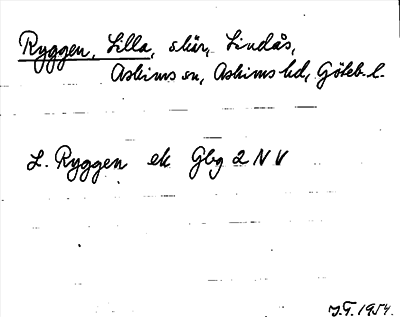 Ryggen, Lilla, skär, Lindås,
Askims sn, Askims hd, Göteb. l.
L. Ryggen ek Gbg 2 N V
J.G. 1954.